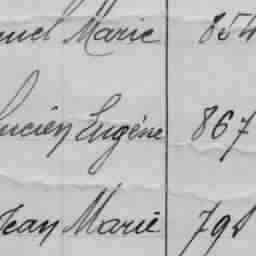 Marie 854
Lucien Eugène 867
Jean Marie 798